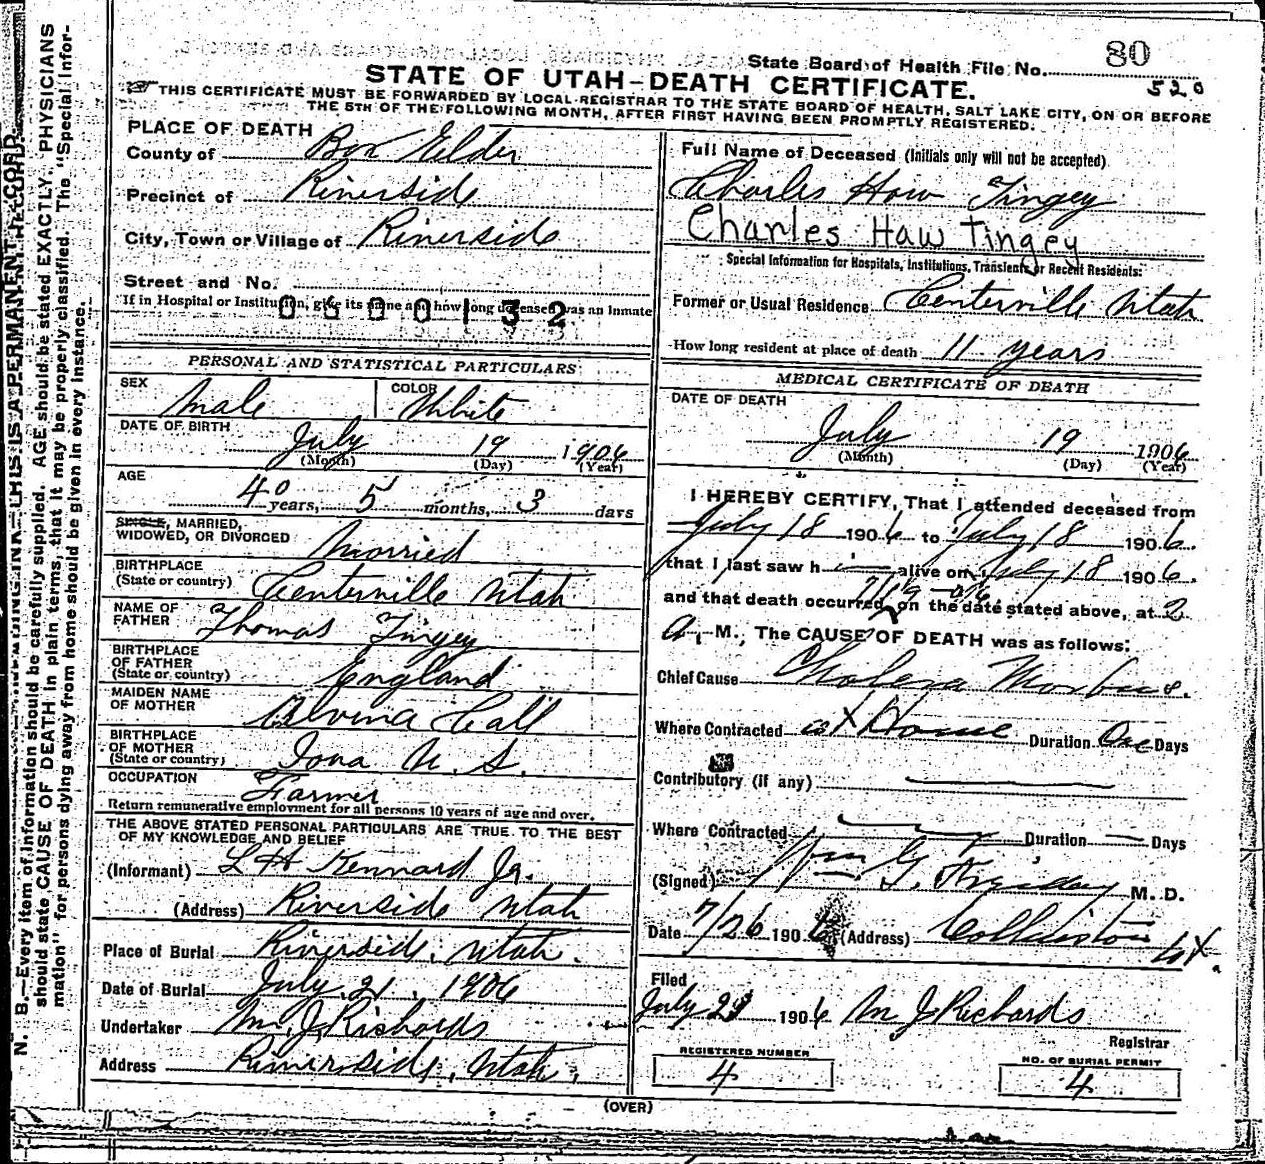 State Board of Health File No. 80
520
STATE OF UTAH—DEATH CERTIFICATE.
THIS CERTIFICATE MUST BE FORWARDED BY LOCAL REGISTRAR TO THE STATE BOARD OF HEALTH, SALT LAKE CITY, ON OR BEFORE
THE 5TH OF THE FOLLOWING MONTH, AFTER FIRST HAVING BEEN PROMPTLY REGISTERED.
PLACE OF DEATH
County of Box Elder
Precinct of Riverside
City, Town or Village of Riverside
Street and No.
If in Hospital or Institution, give its name and how long deceased was an Inmate
0600132
PERSONAL AND STATISTICAL PARTICULARS
SEX Male
COLOR White
DATE OF BIRTH July 19 1906
(Month) (Day) (Year)
AGE
40 years, 5 months, 3 days
SINGLE, MARRIED,
WIDOWED, OR DIVORCED Married
BIRTHPLACE
(State or country) Centerville Utah
NAME OF
FATHER Thomas Tingey
BIRTHPLACE
OF FATHER
(State or country) England
MAIDEN NAME
OF MOTHER Alvina Call
BIRTHPLACE
OF MOTHER
(State or country) Iona U. S.
OCCUPATION Farmer
Return remunerative employment for all persons 10 years of age and over.
THE ABOVE STATED PERSONAL PARTICULARS ARE TRUE TO THE BEST
OF MY KNOWLEDGE AND BELIEF
(Informant) L H Kennard Jr.
(Address) Riverside Utah
Place of Burial Riverside, Utah.
Date of Burial July, 21, 1906
Undertaker M. J. Richards
Address Riverside, Utah,
Full Name of Deceased (Initials only will not be accepted)
Charles How Tingey
Charles Haw Tingey
Special Information for Hospitals, Institutions, Transients, or Recent Residents:
Former or Usual Residence Centerville Utah
How long resident at place of death 11 years
MEDICAL CERTIFICATE OF DEATH
DATE OF DEATH
July 19 1906
(Month) (Day) (Year)
I HEREBY CERTIFY, That I attended deceased from
July 18 1906 to July 18 1906.
that I last saw h i alive on July 18 1906.
7/19-06
and that death occurred, on the date stated above, at 2
a. M., The CAUSE OF DEATH was as follows:
Chief Cause Cholera Morbus.
Where Contracted at Home Duration One Days
Contributory (if any)
Where Contracted Duration — Days
(Signed) Wm G. M. D.
Date 7/26 1906 (Address) Collinston Ut.
Filed
July 21 1906 M J Richards
Registrar
REGISTERED NUMBER
4
NO. OF BURIAL PERMIT
4
(OVER)
N. B.—Every item of information should be carefully supplied. AGE should be stated EXACTLY. PHYSICIANS
should state CAUSE OF DEATH in plain terms, that it may be properly classified. The "Special Infor-
mation" for persons dying away from home should be given in every instance.
THIS IS A PERMANENT RECORD.